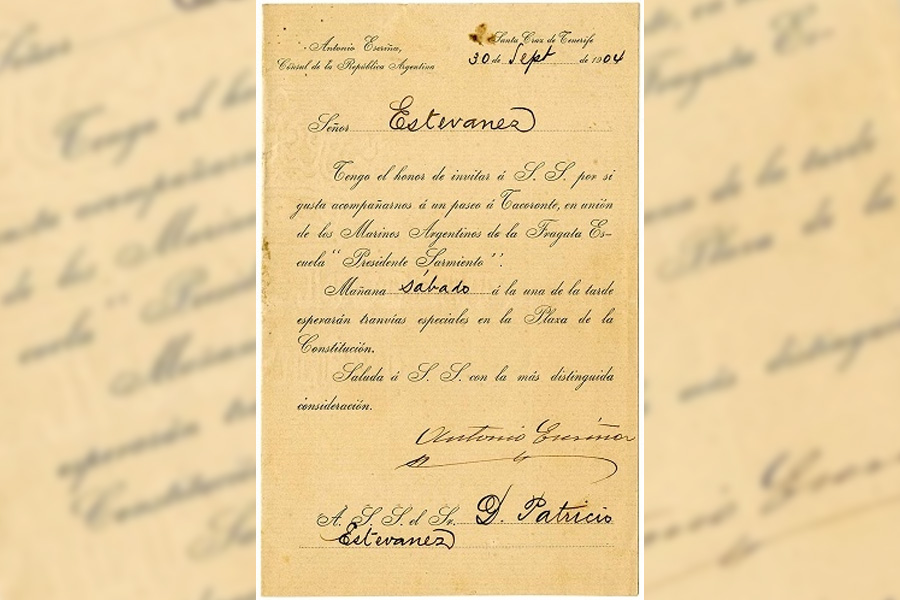 Antonio Escriña,
Cónsul de la República Argentina
Santa Cruz de Tenerife
30 de Sept de 1904
Señor Estevanez
Tengo el honor de invitar á S. S. por si
gusta acompañarnos á un paseo á Tacoronte, en unión
de los Marinos Argentinos de la Fragata Es-
cuela "Presidente Sarmiento".
Mañana sábado á la una de la tarde
esperarán tranvías especiales en la Plaza de la
Constitución.
Saluda á S. S. con la más distinguida
consideración.
Antonio Escriña
A. S. S. el Sr. D. Patricio
Estevanez